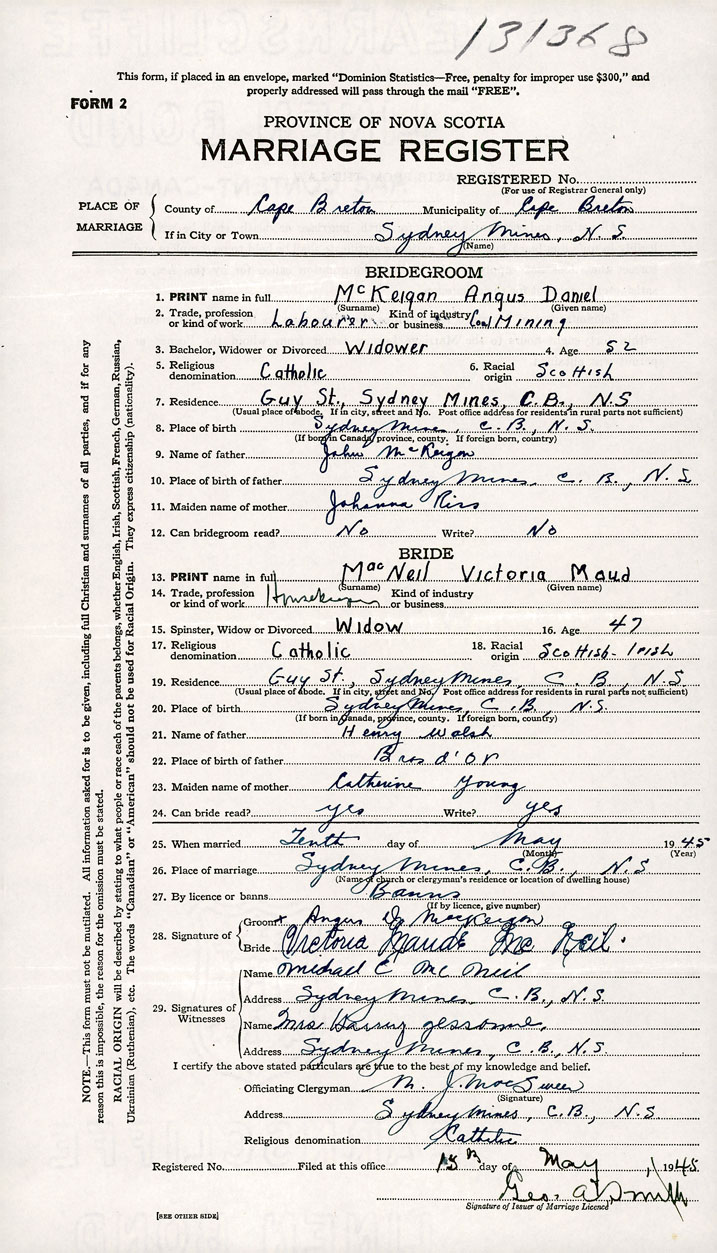 131368
This form, if placed in an envelope, marked "Dominion Statistics—Free, penalty for improper use $300," and
properly addressed will pass through the mail "FREE".
FORM 2
PROVINCE OF NOVA SCOTIA
MARRIAGE REGISTER
REGISTERED No.
(For use of Registrar General only)
PLACE OF MARRIAGE
County of Cape Breton Municipality of Cape Breton
If in City or Town Sydney Mines, N.S
(Name)
BRIDEGROOM
1. PRINT name in full McKeigan Angus Daniel
(Surname) (Given name)
2. Trade, profession or kind of work Labourer Kind of industry or business Coal Mining
3. Bachelor, Widower or Divorced Widower 4. Age 52
5. Religious denomination Catholic 6. Racial origin Scottish
7. Residence Guy St., Sydney Mines, C.B., N.S
(Usual place of abode. If in city, street and No. Post office address for residents in rural parts not sufficient)
8. Place of birth Sydney Mines, C.B., N.S.
(If born in Canada, province, county. If foreign born, country)
9. Name of father John McKeigan
10. Place of birth of father Sydney Mines, C.B., N.S
11. Maiden name of mother Johanna
12. Can bridegroom read? No Write? No
BRIDE
13. PRINT name in full MacNeil Victoria Maud
(Surname) (Given name)
14. Trade, profession or kind of work Housekeeper Kind of industry or business
15. Spinster, Widow or Divorced Widow 16. Age 47
17. Religious denomination Catholic 18. Racial origin Scottish-Irish
19. Residence Guy St., Sydney Mines, C.B, N.S
(Usual place of abode. If in city, street and No. Post office address for residents in rural parts not sufficient)
20. Place of birth Sydney Mines, C.B., N.S.
(If born in Canada, province, county. If foreign born, country)
21. Name of father Henry Walsh
22. Place of birth of father Bras d'Or
23. Maiden name of mother Catherine Young
24. Can bride read? yes Write? yes
25. When married Tenth day of May 1945
(Month) (Year)
26. Place of marriage Sydney Mines, C.B., N.S
(Name of church or clergyman's residence or location of dwelling house)
27. By licence or banns Banns
(If by licence, give number)
28. Signature of
Groom x Angus D. MacKeigan
Bride Victoria Maude Mc Neil.
29. Signatures of Witnesses
Name Michael C Mc Neil
Address Sydney Mines, C.B., N.S.
Name Mrs Harry
Address Sydney Mines, C.B., N.S.
I certify the above stated particulars are true to the best of my knowledge and belief.
Officiating Clergyman M. J. MacSween
(Signature)
Address Sydney Mines, C.B., N.S
Religious denomination Catholic
Registered No. Filed at this office 15th day of May, 1945
Geo. A. Smith
Signature of Issuer of Marriage Licence
[SEE OTHER SIDE]
NOTE.—This form must not be mutilated. All information asked for is to be given, including full Christian and surnames of all parties, and if for any
reason this is impossible, the reason for the omission must be stated.
RACIAL ORIGIN will be described by stating to what people or race each of the parents belongs, whether English, Irish, Scottish, French, German, Russian,
Ukrainian (Ruthenian), etc. The words "Canadian" or "American" should not be used for Racial Origin. They express citizenship (nationality).